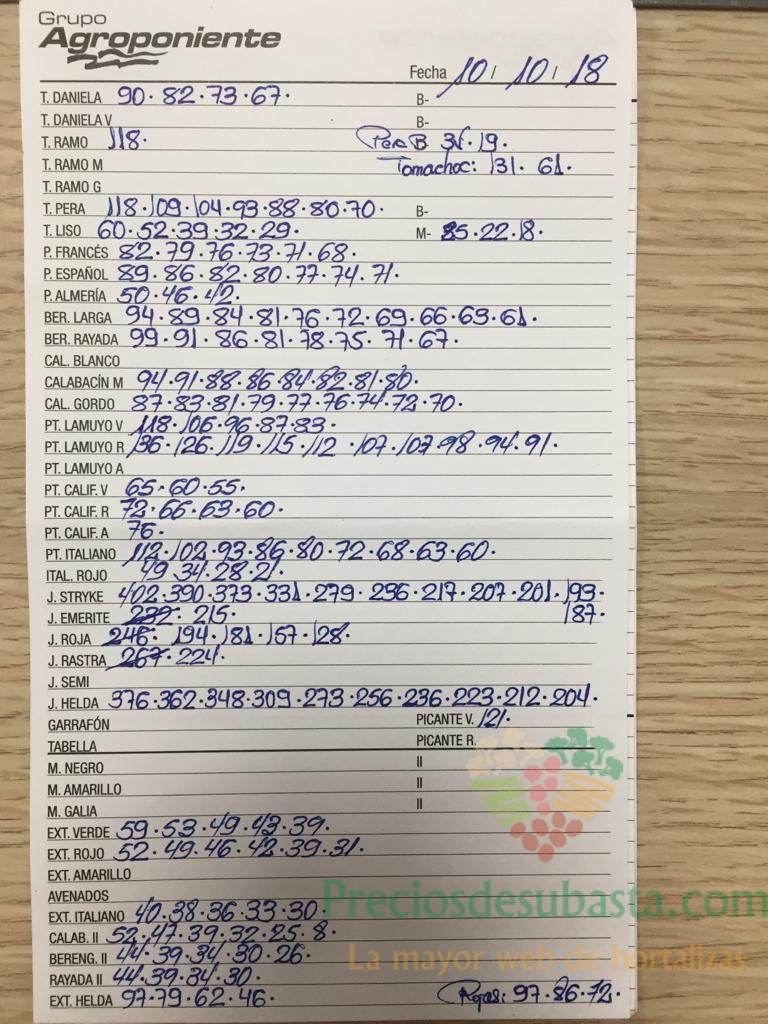 Grupo
Agroponiente
Fecha 10 / 10 / 18
T. DANIELA 90. 82. 73. 67. B-
T. DANIELA V B-
T. RAMO 118. Pera B 31. 19.
T. RAMO M Tomachoc: 131. 61.
T. RAMO G
T. PERA 118. 109. 104. 93. 88. 80. 70. B-
T. LISO 60. 52. 39. 32. 29. M- 25. 22. 18.
P. FRANCÉS 82. 79. 76. 73. 71. 68.
P. ESPAÑOL 89. 86. 82. 80. 77. 74. 71.
P. ALMERÍA 50. 46. 42.
BER. LARGA 94. 89. 84. 81. 76. 72. 69. 66. 63. 61.
BER. RAYADA 99. 91. 86. 81. 78. 75. 71. 67.
CAL. BLANCO
CALABACÍN M 94. 91. 88. 86. 84. 82. 81. 80.
CAL. GORDO 87. 83. 81. 79. 77. 76. 74. 72. 70.
PT. LAMUYO V 118. 106. 96. 87. 83.
PT. LAMUYO R 136. 126. 119. 115. 112. 107. 107. 98. 94. 91.
PT. LAMUYO A
PT. CALIF. V 65. 60. 55.
PT. CALIF. R 72. 66. 63. 60.
PT. CALIF. A 76.
PT. ITALIANO 112. 102. 93. 86. 80. 72. 68. 63. 60.
ITAL. ROJO 49. 34. 28. 21.
J. STRYKE 402. 390. 373. 331. 279. 236. 217. 207. 201. 193.
J. EMERITE 232. 215. 187.
J. ROJA 246. 194. 181. 157. 128.
J. RASTRA 267. 224.
J. SEMI
J. HELDA 376. 362. 348. 309. 273. 256. 236. 223. 212. 204.
GARRAFÓN PICANTE V. 121.
TABELLA PICANTE R.
M. NEGRO II
M. AMARILLO II
M. GALIA II
EXT. VERDE 59. 53. 49. 43. 39.
EXT. ROJO 52. 49. 46. 42. 39. 31.
EXT. AMARILLO
AVENADOS
Preciosdesubasta.com
EXT. ITALIANO 40. 38. 36. 33. 30.
CALAB. II 52. 47. 39. 32. 25. 8.
La mayor web de hortalizas
BERENG. II 44. 39. 34. 30. 26.
RAYADA II 44. 39. 34. 30.
EXT. HELDA 97. 79. 62. 46. Rojas: 97. 86. 72.